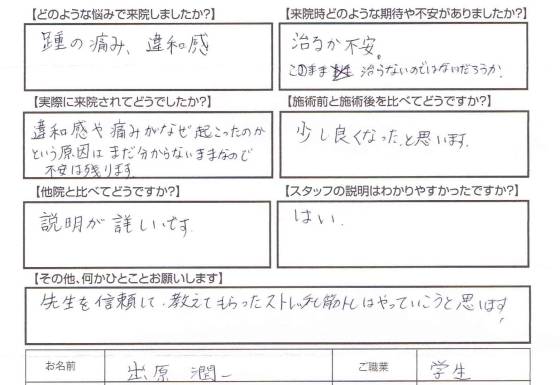 【どのような悩みで来院しましたか?】
踵の痛み、違和感
【来院時どのような期待や不安がありましたか?】
治るか不安。
このまま 治らないのではないだろうか。
【実際に来院されてどうでしたか?】
違和感や痛みがなぜ起こったのか
という原因はまだ分からないままなので
不安は残ります
【施術前と施術後を比べてどうですか?】
少し良くなったと思います。
【他院と比べてどうですか?】
説明が詳しいです
【スタッフの説明はわかりやすかったですか?】
はい。
【その他、何かひとことお願いします】
先生を信頼して、教えてもらったストレッチと筋トレはやっていこうと思います
お名前
出原 潤一
ご職業
学生